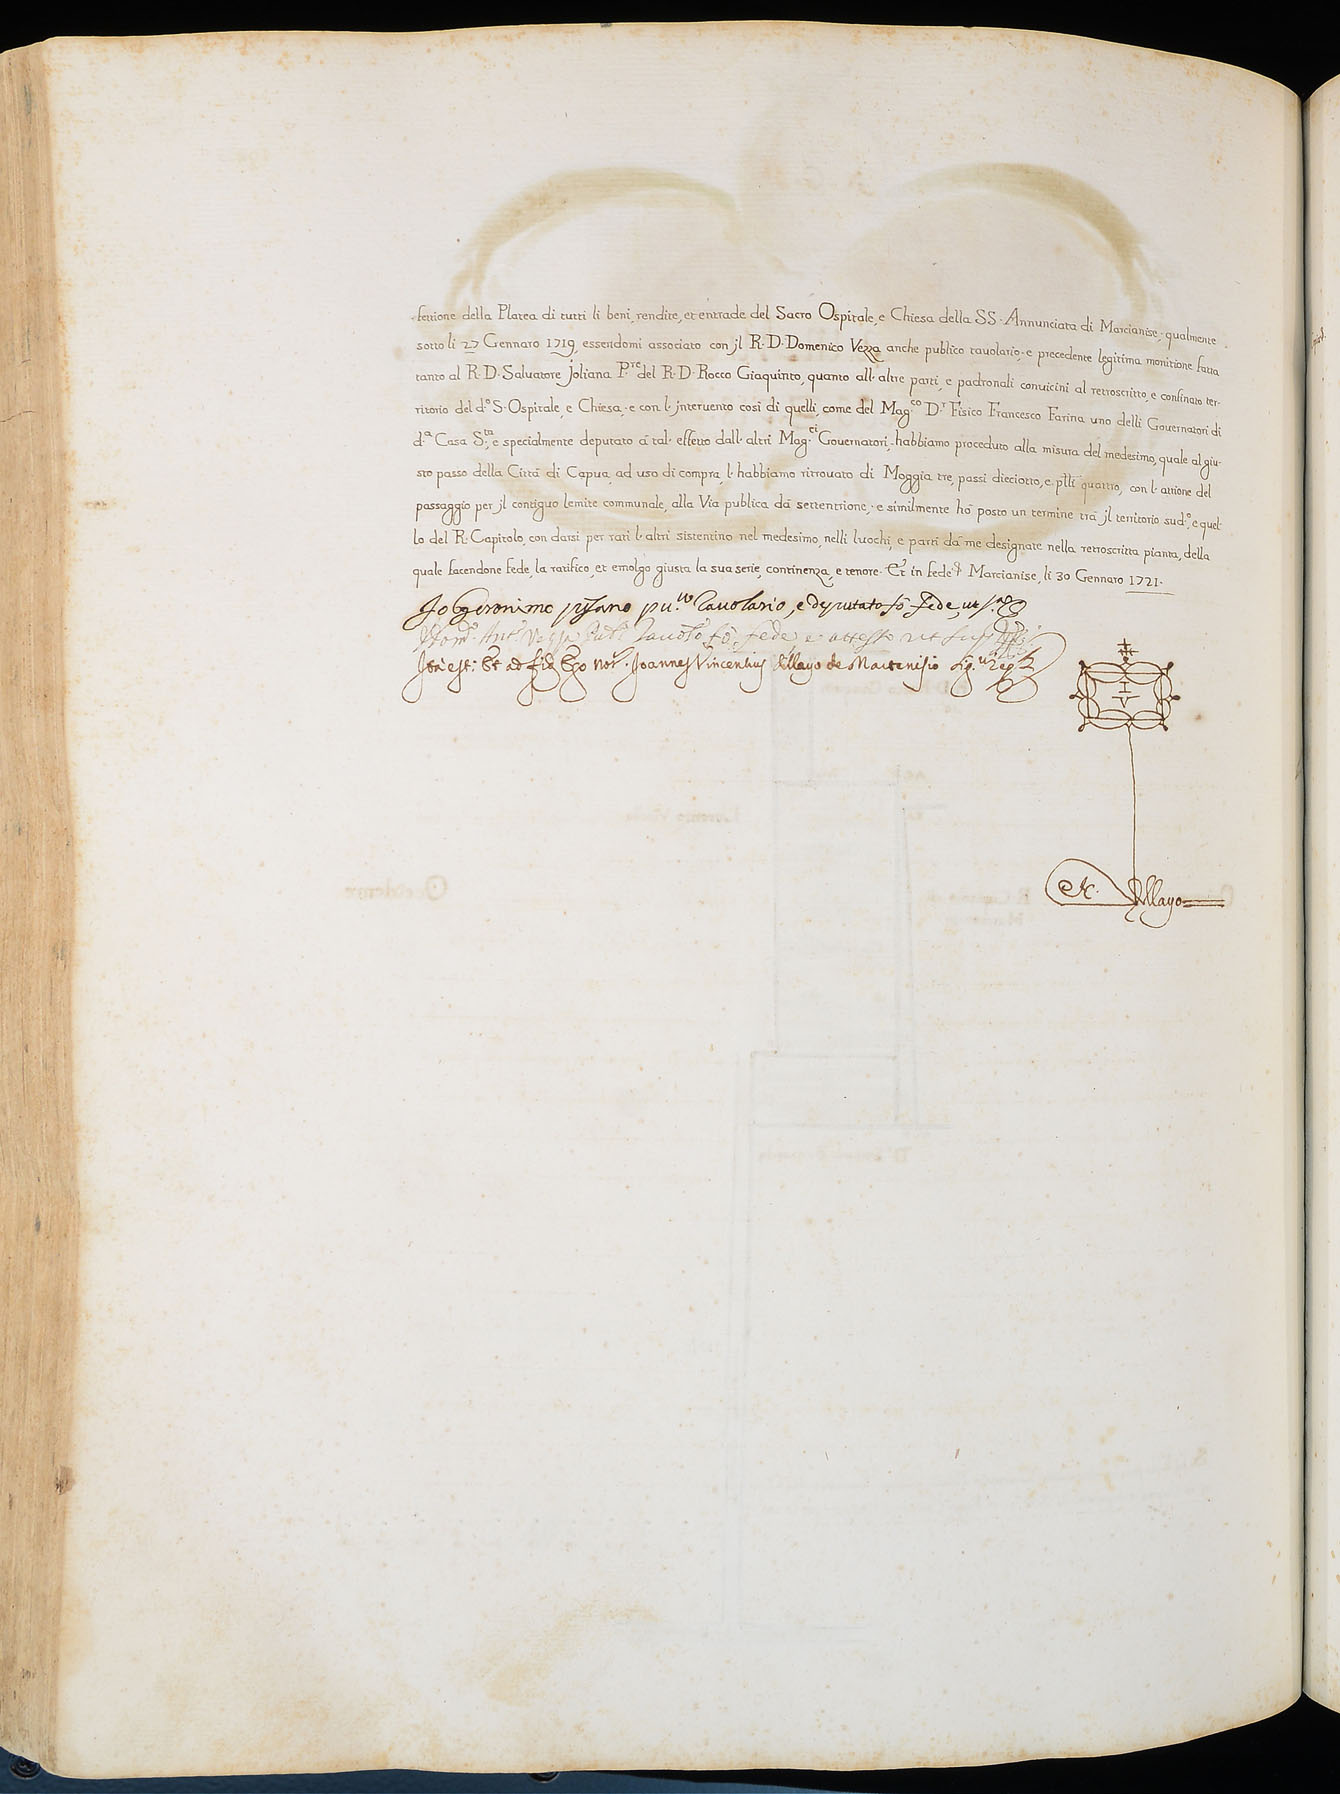 fettione della Platea di tutti li beni, rendite, et entrade del Sacro Ospitale, e Chiesa della SS. Annunciata di Marcianise, qualmente
sotto li 27 Gennaro 1719, essendomi associato con jl R. D. Domenico Vezza anche publico tavolario, e precedente legitima monitione fatta
tanto al R. D. Salvatore Joliana P.re del R. D. Rocco Giaquinto, quanto all' altre parti, e padronali convicini al retroscritto, e confinato ter-
ritorio del d.o S. Ospitale, e Chiesa, e con l' jntervento così di quelli, come del Mag.co D.r Fisico Francesco Farina uno delli Governatori di
d.a Casa S.ta, e specialmente deputato à tal' effetto dall' altri Mag.ci Governatori, habbiamo proceduto alla misura del medesimo, quale al giu-
sto passo della Città di Capua, ad uso di compra, l' habbiamo ritrovato di Moggia tre, passi dieciotto, e p̃lli quattro, con l' attione del
passaggio per jl contiguo lemite communale, alla Via publica dà settentrione, e similmente hò posto un termine trà jl territorio sud.o, e quel-
lo del R. Capitolo, con darsi per rati l' altri sistentino nel medesimo, nelli luochi, e parti dà me designate nella retroscritta pianta, della
quale facendone fede, la ratifico, et emolgo giusta la sua serie, continenza, e tenore. Et in fede Marcianise, li 30 Gennaro 1721.
Jo Geronimo pisano pu.co Tavolario, e deputato fò fede, ut s.a
Ant. Vezza Tavol.o fò fede e attesto ut sup.
Ita est: Et ad fid. Ego not.r Joannes Vincentius Allayo de Martenisio sig.vi Req.
I V
N. Allayo